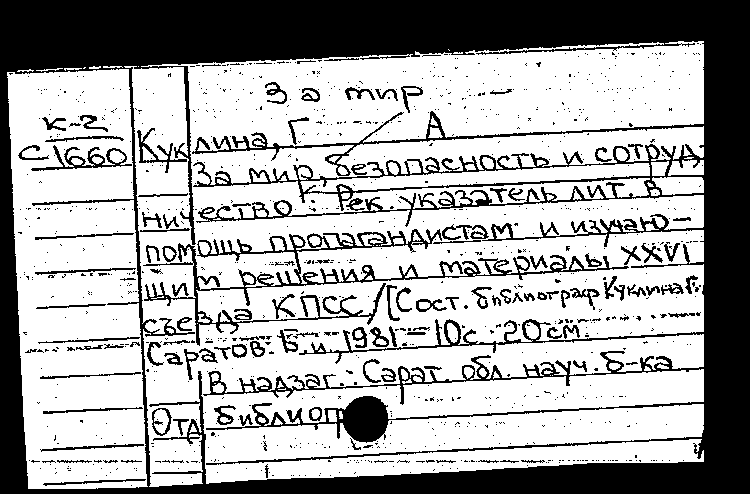 За мир
К-2
С1660
Куклина, Г А
За мир, безопасность и сотруд-
ничество: Рек. указатель лит. в
помощь пропагандистам и изучаю-
щим решения и материалы XXVI
съезда КПСС/[Сост. библиограф Куклина Г.
Саратов: Б.и., 1981.-10с.; 20см.
В надзаг.: Сарат. обл. науч. б-ка
Отд. библиогр